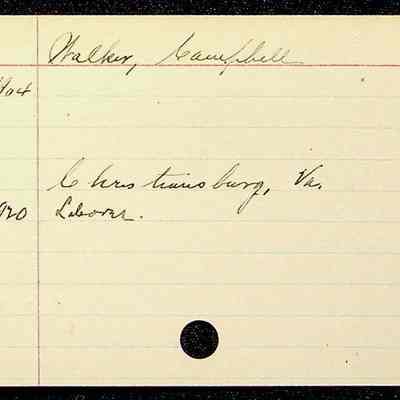 Walker, Campbell
904
Christiansburg, Va.
920 Laborer.